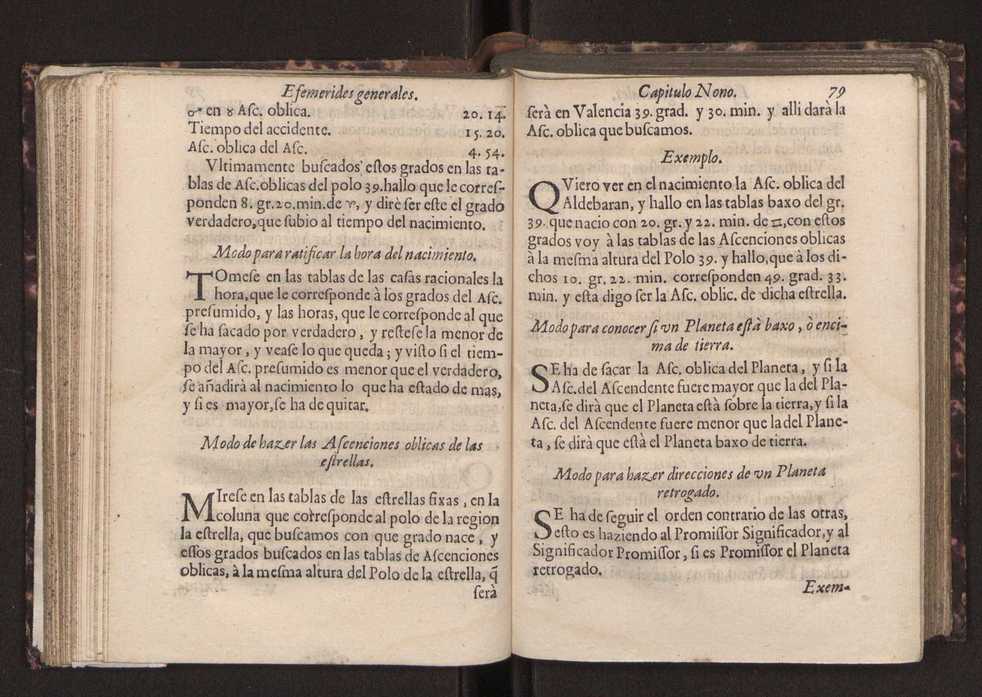 Efemerides generales.
♂ en ♉ Asc. oblica. 20. 14.
Tiempo del accidente. 15. 20.
Asc. oblica del Asc. 4. 54.
Vltimamente buscados estos grados en las ta-
blas de Asc. oblicas del polo 39. hallo que le corres-
ponden 8. gr. 20. min. de ♈, y dirè ser este el grado
verdadero, que subio al tiempo del nacimiento.
Modo para ratificar la hora del nacimiento.
TOmese en las tablas de las casas racionales la
hora, que le corresponde à los grados del Asc.
presumido, y las horas, que le corresponde al que
se ha sacado por verdadero, y restese la menor de
la mayor, y vease lo que queda; y visto si el tiem-
po del Asc. presumido es menor que el verdadero,
se añadirà al nacimiento lo que ha estado de mas,
y si es mayor, se ha de quitar.
Modo de hazer las Ascenciones oblicas de las
estrellas.
MIrese en las tablas de las estrellas fixas, en la
coluna que corresponde al polo de la region
la estrella, que buscamos con que grado nace, y
estos grados buscados en las tablas de Ascenciones
oblicas, à la mesma altura del Polo de la estrella, q̃
serà
Capitulo Nono. 79
serà en Valencia 39. grad. y 30. min. y alli darà la
Asc. oblica que buscamos.
Exemplo.
QViero ver en el nacimiento la Asc. oblica del
Aldebaran, y hallo en las tablas baxo del gr.
39. que nacio con 20. gr. y 22. min. de ♊, con estos
grados voy à las tablas de las Ascenciones oblicas
à la mesma altura del Polo 39. y hallo, que à los di-
chos 10. gr. 22. min. corresponden 49. grad. 33.
min. y esta digo ser la Asc. oblic. de dicha estrella.
Modo para conocer si vn Planeta està baxo, ò enci-
ma de tierra.
SE ha de sacar la Asc. oblica del Planeta, y si la
Asc. del Ascendente fuere mayor que la del Pla-
neta, se dirà que el Planeta està sobre la tierra, y si la
Asc. del Ascendente fuere menor que la del Plane-
ta, se dirà que està el Planeta baxo de tierra.
Modo para hazer direcciones de vn Planeta
retrogado.
SE ha de seguir el orden contrario de las otras,
esto es haziendo al Promissor Significador, y al
Significador Promissor, si es Promissor el Planeta
retrogado.
Exem-